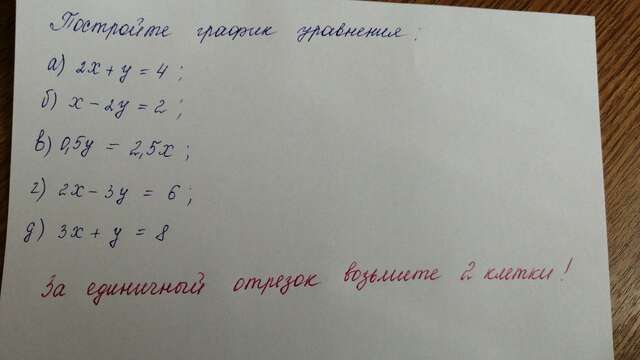 Постройте график уравнения:
а) 2x + y = 4;
б) x - 2y = 2;
в) 0,5y = 2,5x;
г) 2x - 3y = 6;
д) 3x + y = 8
За единичный отрезок возьмите 2 клетки!